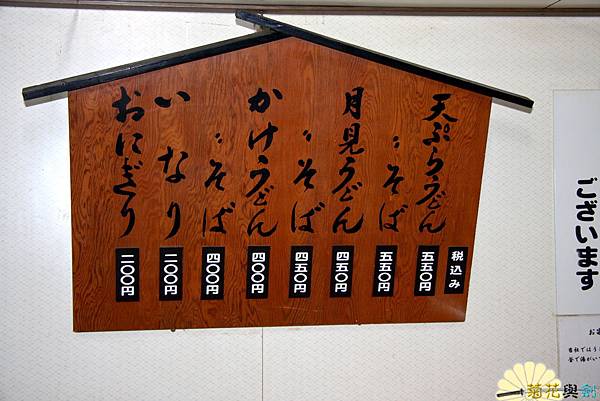 税込み
天ぷらうどん 五五〇円
〃そば 五五〇円
月見うどん 四五〇円
〃そば 四五〇円
かけうどん 四〇〇円
〃そば 四〇〇円
いなり 二〇〇円
おにぎり 二〇〇円
ございます
菊花與劍